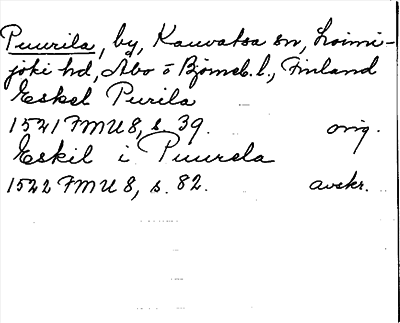 Puurila, by, Kauvatsa sn, Loimi-
joki hd, Åbo o Björneb. l., Finland
Eskel Purila
1521 FMU 8, s. 39. orig.
Eskil i Puurela
1522 FMU 8, s. 82. avskr.